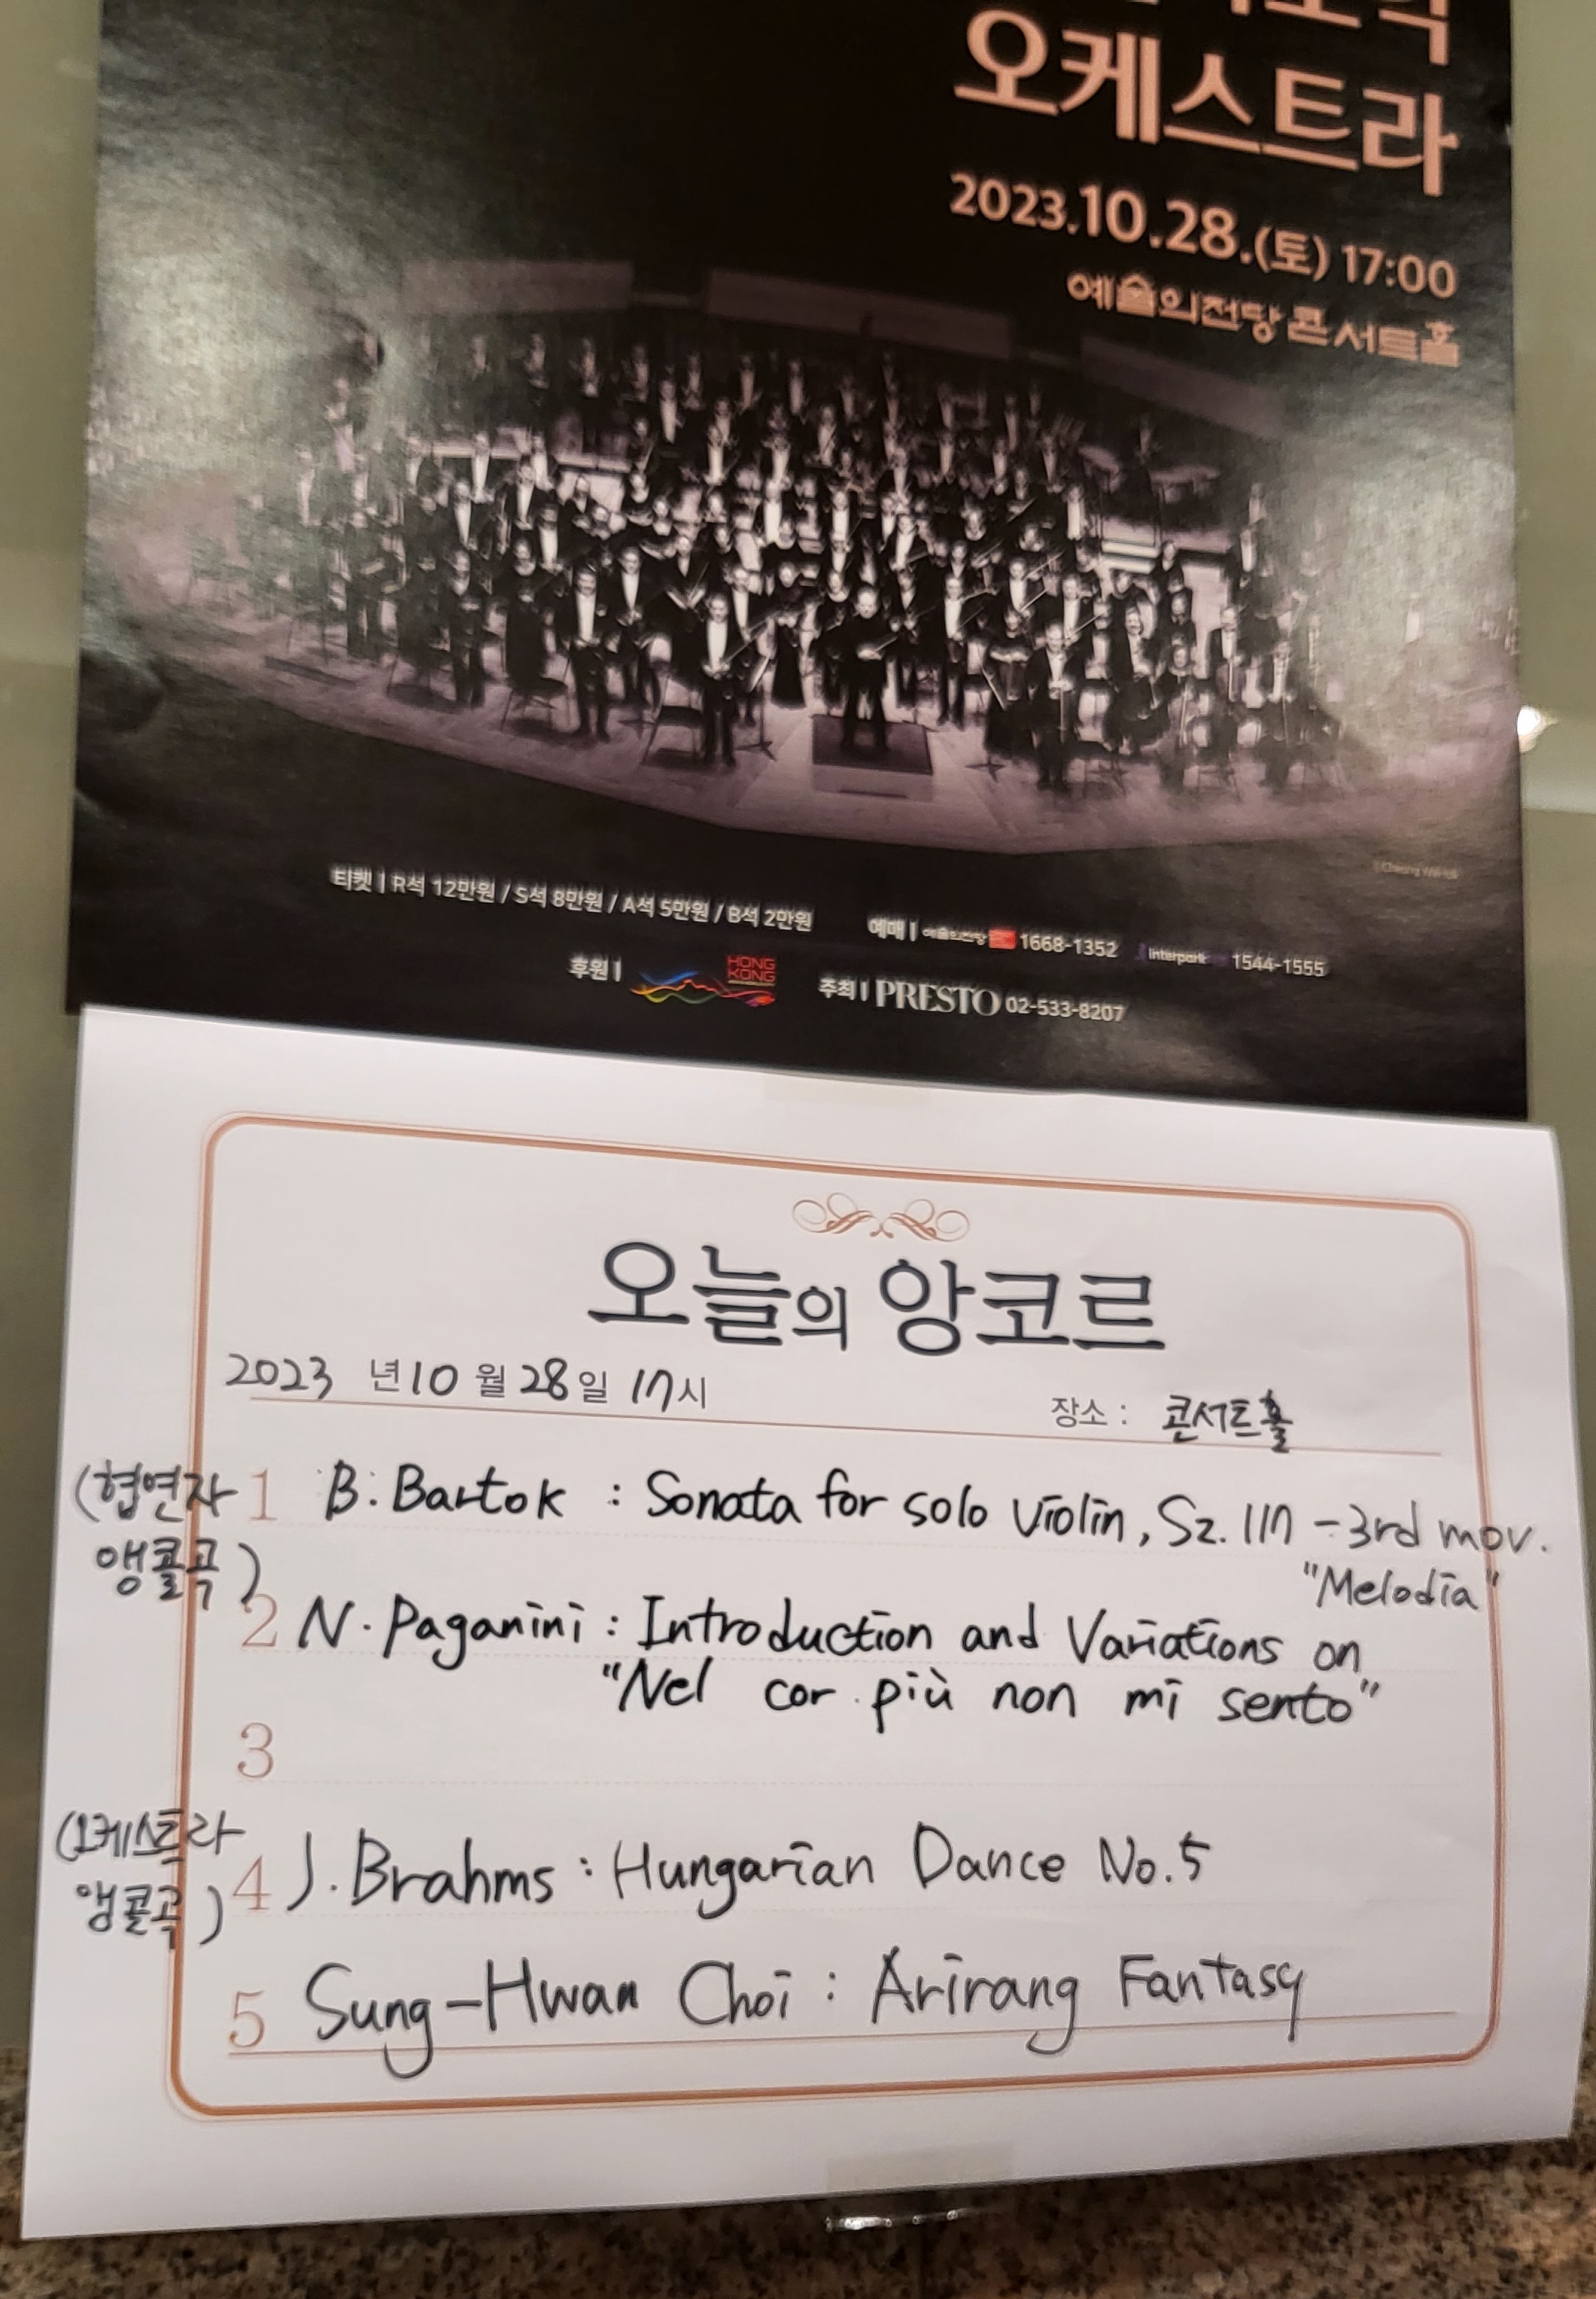 오케스트라
2023.10.28.(토) 17:00
예술의전당 콘서트홀
티켓 | R석 12만원 / S석 8만원 / A석 5만원 / B석 2만원
예매 | 예술의전당 1668-1352 interpark 1544-1555
후원 | HONG KONG
주최 | PRESTO 02-533-8207
오늘의 앙코르
2023 년 10 월 28 일 17시
장소 : 콘서트홀
(협연자 앵콜곡)
1 B. Bartok : Sonata for solo violin, Sz. 117 - 3rd mov.
"Melodia"
2 N. Paganini : Introduction and Variations on
"Nel cor più non mi sento"
3
(오케스트라 앵콜곡)
4 J. Brahms : Hungarian Dance No.5
5 Sung-Hwan Choi : Arirang Fantasy